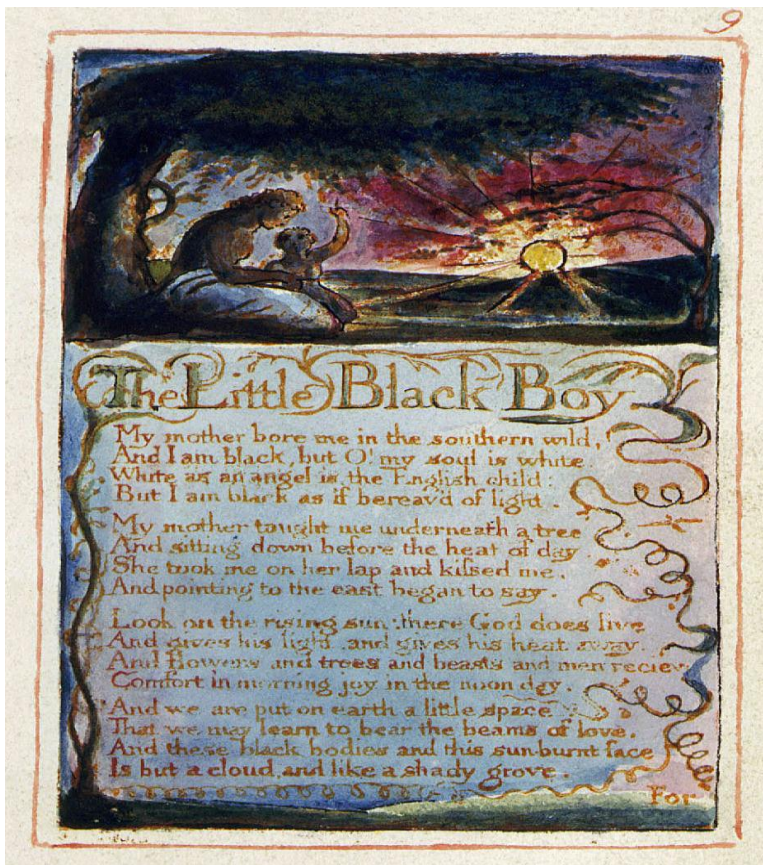 9
The Little Black Boy
My mother bore me in the southern wild,
And I am black, but O! my soul is white.
White as an angel is the English child:
But I am black as if bereav'd of light.
My mother taught me underneath a tree
And sitting down before the heat of day
She took me on her lap and kissed me,
And pointing to the east began to say.
Look on the rising sun: there God does live
And gives his light, and gives his heat away.
And flowers and trees and beasts and men recieve
Comfort in morning joy in the noon day.
And we are put on earth a little space
That we may learn to bear the beams of love.
And these black bodies and this sun-burnt face
Is but a cloud, and like a shady grove.
For